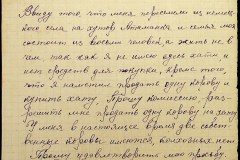 Ввиду того, что меня переселили из немец-
кого села на хутор Атаманка и семья моя
состоит из восьми человек, а жить не в
чем так как я не имею здесь хаты и
нет средств для покупки, кроме того,
что я намерен продать одну корову и
купить хату. Прошу комиссию, раз-
решить мне продать одну корову на хату
У меня в настоящее время две собст
венные коровы имеются, колхозных нет
Прошу удовлетворить мою просьбу